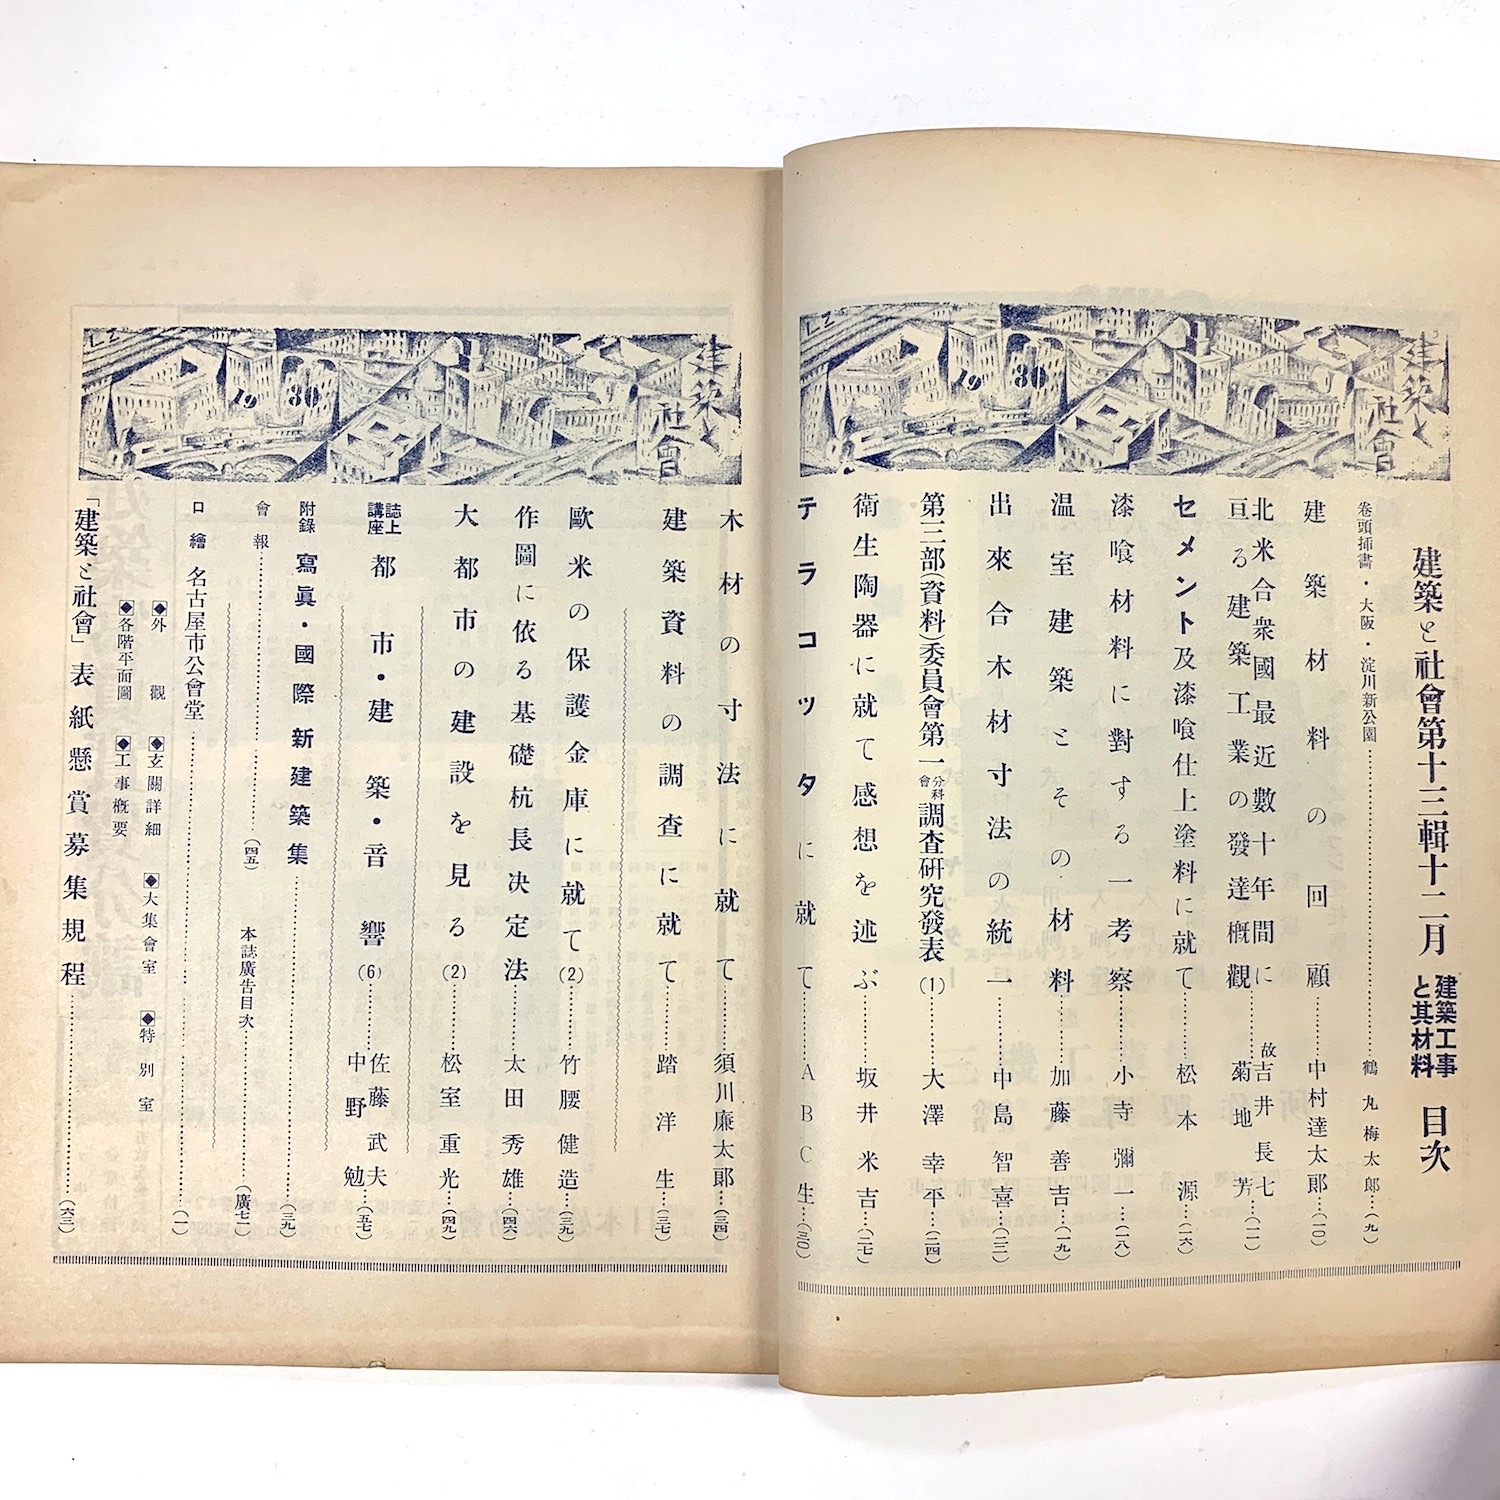 建築と
社會
19 30
建築と社會第十三輯十二月 建築工事と其材料 目次
卷頭挿畵・大阪・淀川新公園…………鶴丸梅太郎…(九)
建築材料の回顧…………中村達太郎…(一〇)
北米合衆國最近數十年間に亘る建築工業の發達槪觀…………故吉井長七 菊地芳…(一一)
セメント及漆喰仕上塗料に就て…………松本源…(一六)
漆喰材料に對する一考察…………小寺彌一…(一八)
温室建築とその材料…………加藤善吉…(一九)
出來合木材寸法の統一…………中島智喜…(二二)
第三部(資料)委員會第一分科會調査研究發表(1)…………大澤幸平…(二四)
衛生陶器に就て感想を述ぶ…………坂井米吉…(二七)
テラコッタに就て…………ABC生…(三〇)
建築と
社會
19 30
木材の寸法に就て…………須川廉太郞…(三四)
建築資料の調査に就て…………踏洋生…(三七)
歐米の保護金庫に就て(2)…………竹腰健造…(三九)
作圖に依る基礎杭長决定法…………太田秀雄…(四六)
大都市の建設を見る(2)…………松室重光…(四九)
誌上講座 都市・建築・音響(6)…………佐藤武夫 中野勉…(五七)
附錄 寫眞・國際新建築集…………(三九)
會報…………(四五) 本誌廣告目次…………(廣七一)
口繪 名古屋市公會堂…………(一)
◆外觀 ◆玄關詳細 ◆大集會室 ◆特別室
◆各階平面圖 ◆工事槪要
「建築と社會」表紙懸賞募集規程…………(六三)